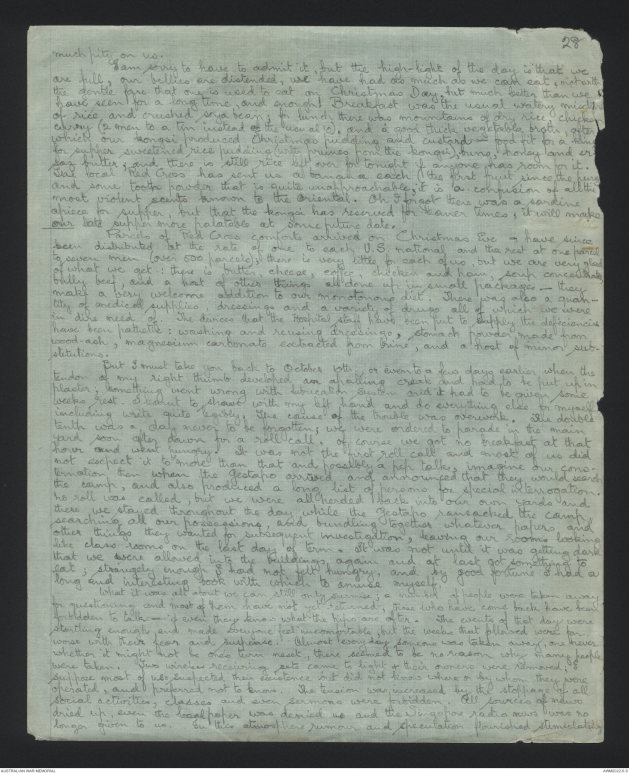 28
much pity on us.
I am sorry to have to admit it, but the high-light of the day is that we
are full, our bellies are distended, we have had as much as we can eat, not with
the gentle fare that one is used to eat on Christmas Day, but much better than we
have seen for a long time, and enough! Breakfast was the usual watery mixture
of rice and crushed soya bean; for lunch there was mountains of dry rice, chicken
curry (2 men to a tin instead of the usual 12), and a good thick vegetable broth, after
which our kongsi produced Christmas pudding and custard – food fit for a king
for supper sweetened rice pudding with prunes from the kongsi, bung, honey and
butter, and there is still rice left over for tonight if anyone has room for it.
The local Red Cross has sent us a banana each, the first fruit since the
and some tooth powder that is quite unapproachable, it is a confusion of all the
most violent scents known to the Oriental. Oh I forgot there was a sardine
apiece for supper, but that the kongsi has reserved for leaner times, it will make
our late supper more palatable at some future date.
Parcels of Red Cross comforts arrived on Christmas Eve – & have since
been distributed at the rate of one to each U.S. national and the rest at one parcel
to seven men (over 500 parcels); there is very little for each of us, but we are very glad
of what we get: there is butter, cheese, coffee, chicken and ham, soup concentrate
bully beef, and a host of other things all done up in small packages – they
make a very welcome addition to our monotonous diet. There was also a quan-
tity of medical supplies, dressings and a variety of drugs all of which we were
in dire need of. The dances that the hospital staff have been put to supply the deficiencies
have been pathetic: washing and reusing dressings, stomach powder made from
wood-ash, magnesium carbonate extracted from brine, and a host of minor sub-
stitutions.
But I must take you back to October 10th, or even to a few days earlier when the
tendon of my right thumb developed an appalling creak and had to be put up in
plaster; something went wrong with lubrication system and it had to be given some
weeks rest. I learnt to shave with my left hand and do everything else for myself
including write quite legibly. The cause of the trouble was overwork. The double
tenth was a day never to be forgotten; we were ordered to parade in the main
yard soon after dawn for a roll call, of course we got no breakfast at that
hour and went hungry. It was not the first roll call and most of us did
not suspect it to more than that and possibly a pep talk, imagine our cons-
ternation then when the Gestapo arrived and announced that they would search
the camp, and also produced a long list of persons for special interrogation.
No roll was called, but we were all herded back into our own yards and
there we stayed throughout the day while the Gestapo ransacked the camp,
searching all our possessions, and bundling together whatever papers, and
other things they wanted for subsequent investigation, leaving our rooms looking
like class rooms on the last day of term. It was not until it was getting dark
that we were allowed into the buildings again and at last got something to
eat, strangely enough I had not felt hungry, and by good fortune I had a
long and interesting book with which to amuse myself.
What it was all about we can still only surmise; a number of people were taken away
for questioning and most of them have not yet returned, those who have come back have been
forbidden to talk – if even they know what the Nips are after. The events of that day were
startling enough and made everyone feel uncomfortable, but the weeks that followed were far
worse with their fear and suspense. Almost every day someone was taken away, one never
whether it might not be ones turn next, there seemed to be no reason why many people
were taken. Two wireless receiving sets came to light & their owners were removed, I
suppose most of us suspected their existence but did not know where or by whom they were
operated, and preferred not to know. The tension was increased by the stoppage of all
social activities, classes and even sermons were forbidden. All sources of news
dried up, even the local paper was denied us and the Singapore radio news was no
longer given to us. In this atmosphere rumour and speculation flourished stimulated
AUSTRALIAN WAR MEMORIAL